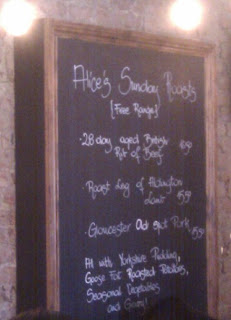 Alice's Sunday Roasts
[Free Range]
· 28 day aged British
Rib of Beef
· Roast Leg of
· Gloucester Old Spot Pork
All with Yorkshire Pudding,
Goose Fat Roasted Potatoes,
Seasonal Vegetables
and Gravy!